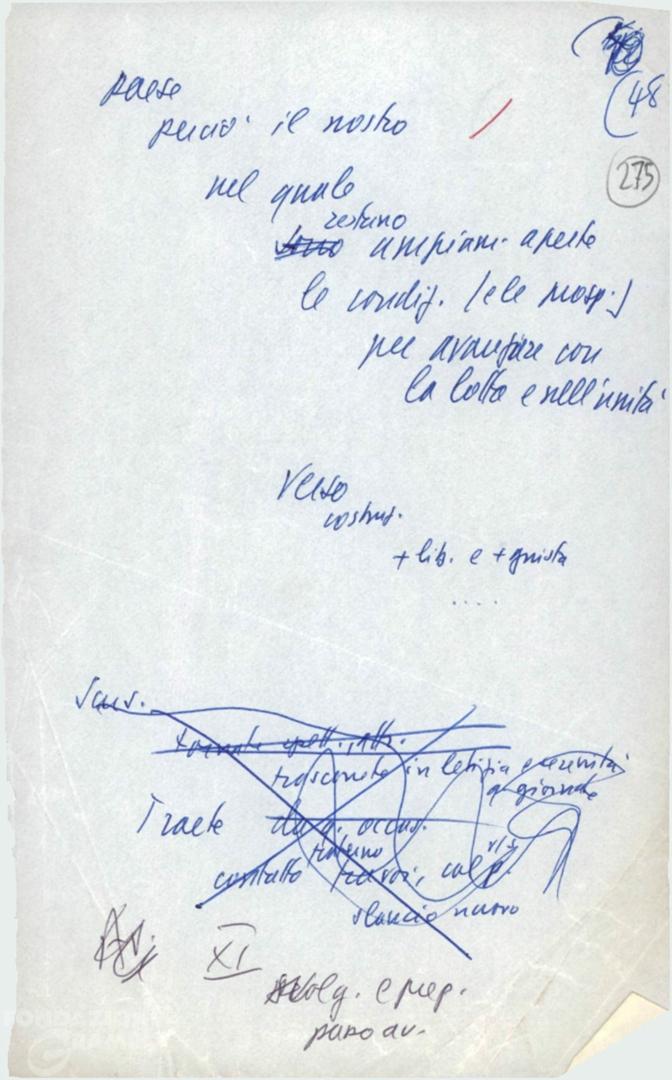 (48
275
paese
perciò il nostro
nel quale
restano
sono ampiam. aperte
le condiz. (e le prosp.)
per avanzare con
la lotta e nell'unità
Verso
costruz.
+ lib. e + giusta
....
trascorrete in letizia e serenità
q. giornate
Traete da q. occas.
contatto fra voi, col p.
slancio nuovo
XI
svolg. e prep.
passo av.